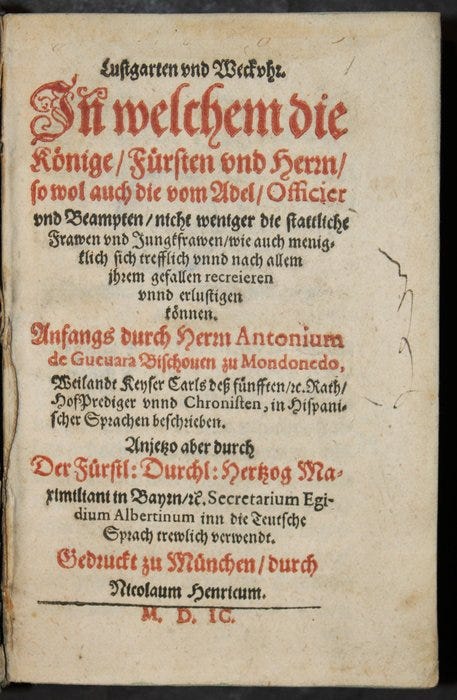 Lustgarten vnd Weckvhr.
Jn̄ welchem die
Könige/ Fürsten vnd Herrn/
so wol auch die vom Adel/ Officier
vnd Beampten/ nicht weniger die stattliche
Frawen vnd Jungkfrawen/ wie auch menig-
klich sich trefflich vnnd nach allem
jhrem gefallen recreieren
vnnd erlustigen
können.
Anfangs durch Herrn Antonium
de Gueuara Bischouen zu Mondonedo,
Weilandt Keyser Carls deß fünfften/ ꝛc. Rath/
HofPrediger vnnd Chronisten, in Hispani-
scher Sprachen beschrieben.
Anjetzo aber durch
Der Fürstl: Durchl: Hertzog Ma-
ximiliani in Bayrn/ ꝛc. Secretarium Egi-
dium Albertinum inn die Teutsche
Sprach trewlich verwendt.
Gedruckt zu München/ durch
Nicolaum Henricum.
M. D. IC.